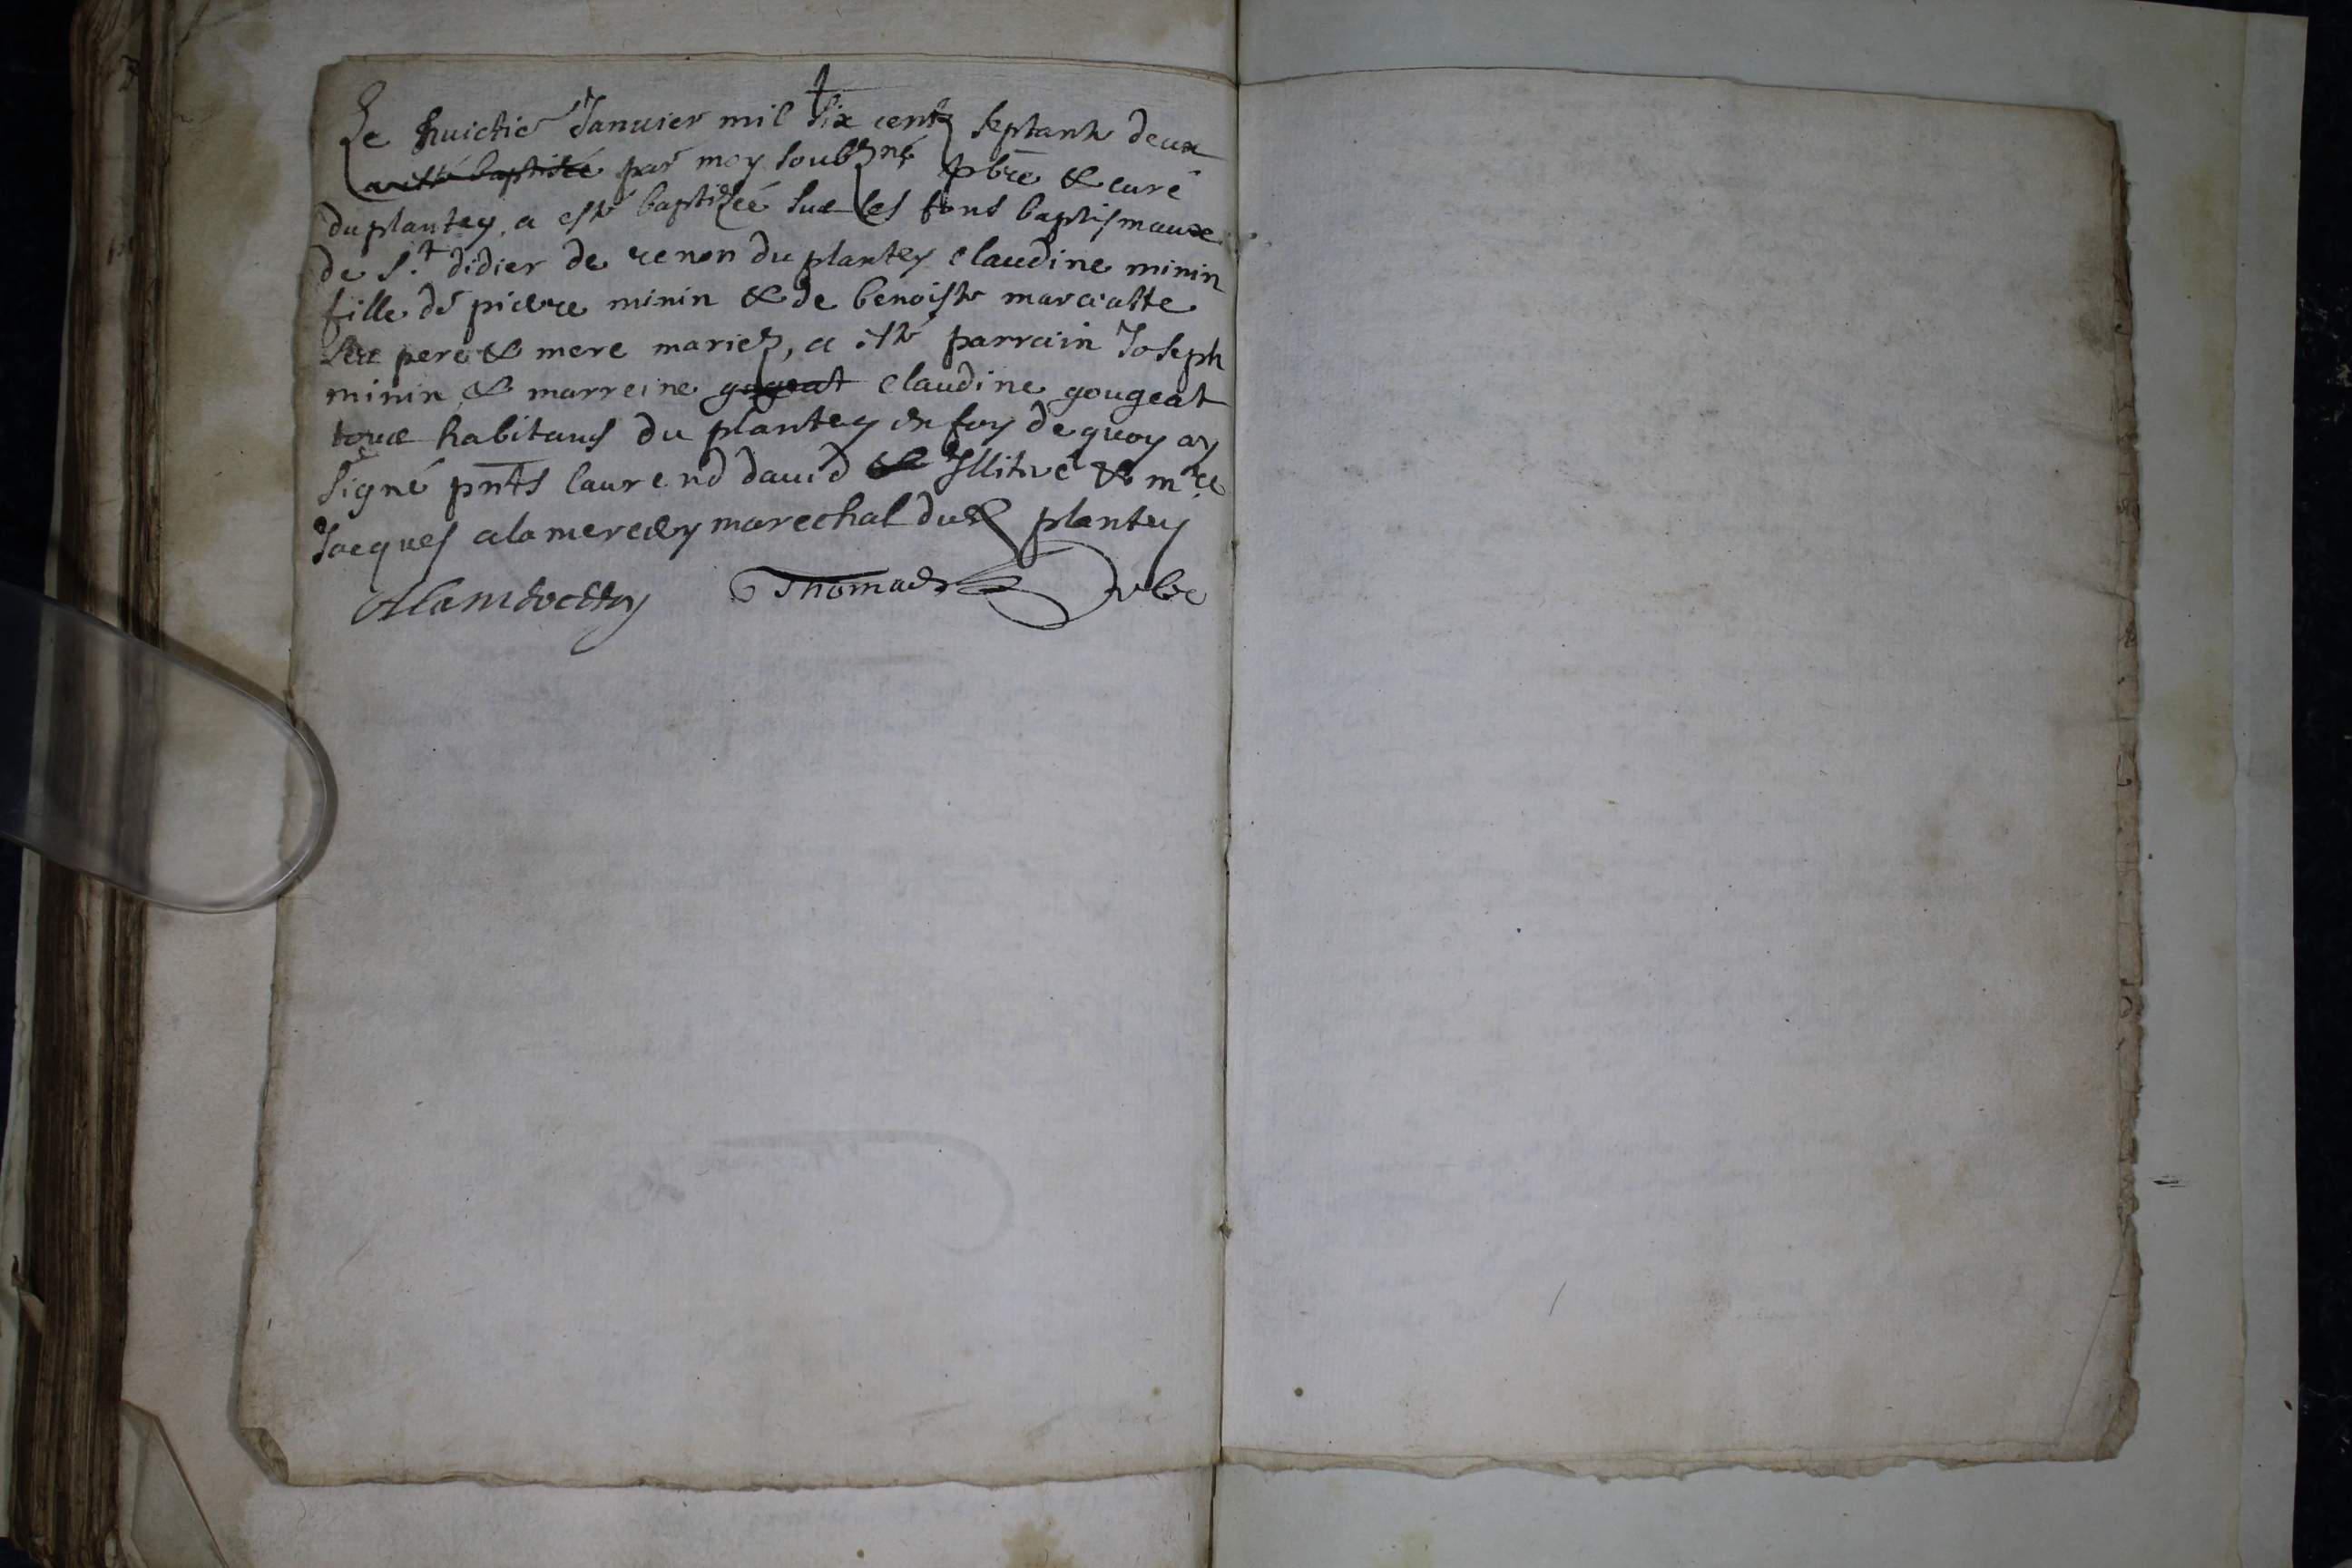 ✝
Le huictie Januier mil six centz septante deux
a esté baptisée par moy soubzné pbre & curé
du plantey, a esté baptizée sur les fons baptismaux
de St didier de renon du plantey claudine minin
fille de pierre minin & de benoiste marciatte
ses pere & mere mariez, a esté parrain Joseph
minin & marreine gogeat claudine gougeat
tous habitans du plantey en foy de quoy ay
signé pnts laurend dauid & Illitré & mre
Jacques alamercery marechal dud plantey
Alamercery Thomas pbre